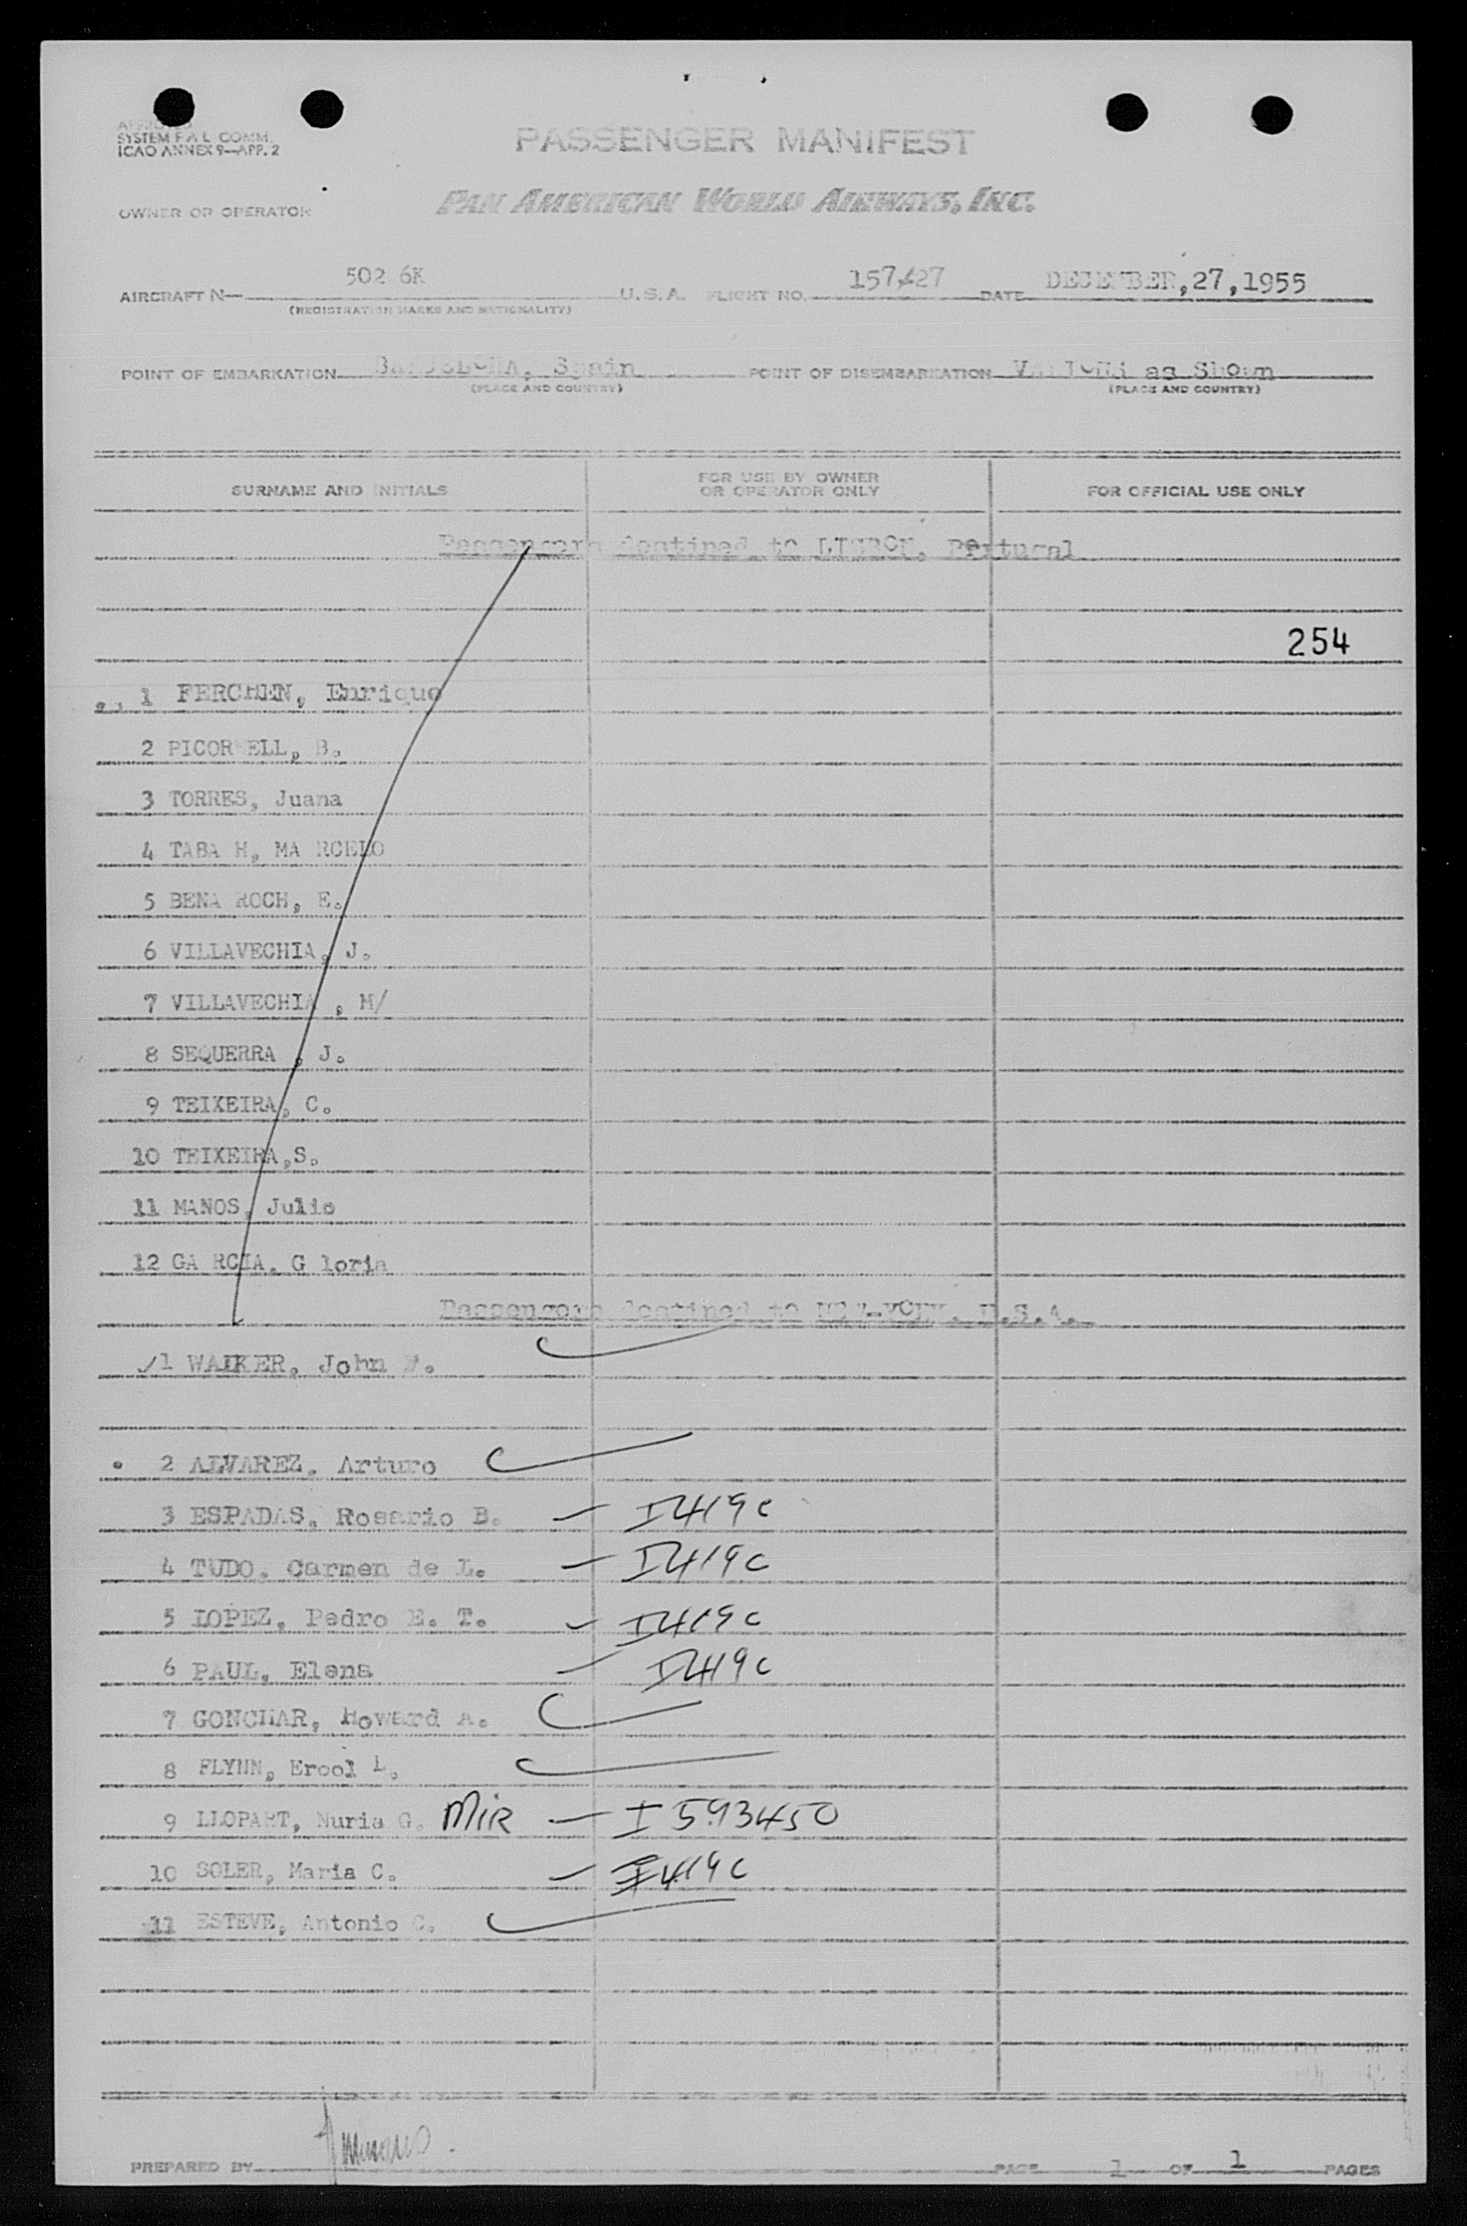 SYSTEM F A L COMM.
ICAO ANNEX 9—APP. 2
PASSENGER MANIFEST
OWNER OR OPERATOR
PAN AMERICAN WORLD AIRWAYS, INC.
AIRCRAFT N— 502 6K U.S.A. FLIGHT NO. 157/27 DATE DECEMBER,27,1955
(REGISTRATION MARKS AND NATIONALITY)
POINT OF EMBARKATION BARCELONA, Spain POINT OF DISEMBARKATION VARIOUS as Shown
(PLACE AND COUNTRY) (PLACE AND COUNTRY)
SURNAME AND INITIALS FOR USE BY OWNER OR OPERATOR ONLY FOR OFFICIAL USE ONLY
Passengers destined to LISBON, Portugal
254
1 FERCHEN, Enrique
2 PICORNELL, B.
3 TORRES, Juana
4 TABA H, MA RCELO
5 BENA ROCH, E.
6 VILLAVECHIA, J.
7 VILLAVECHIA , M/
8 SEQUERRA , J.
9 TEIXEIRA, C.
10 TEIXEIRA,S.
11 MANOS, Julio
12 GA RCIA. G loria
Passengers destined to NEW-YORK. U.S.A.
1 WALKER, John
2 ALVAREZ, Arturo
3 ESPADAS, Rosario B. — I419c
4 TUDO, Carmen de L. — I419c
5 LOPEZ, Pedro E. T. — I419c
6 PAUL, Elena — I419c
7 GONCHAR, Howard A.
8 FLYNN, Erool L.
9 LLOPART, Nuria G. MIR — I 593450
10 SOLER, Maria C. — I419c
11 ESTEVE, Antonio C.
PREPARED BY PAGE 1 OF 1 PAGES